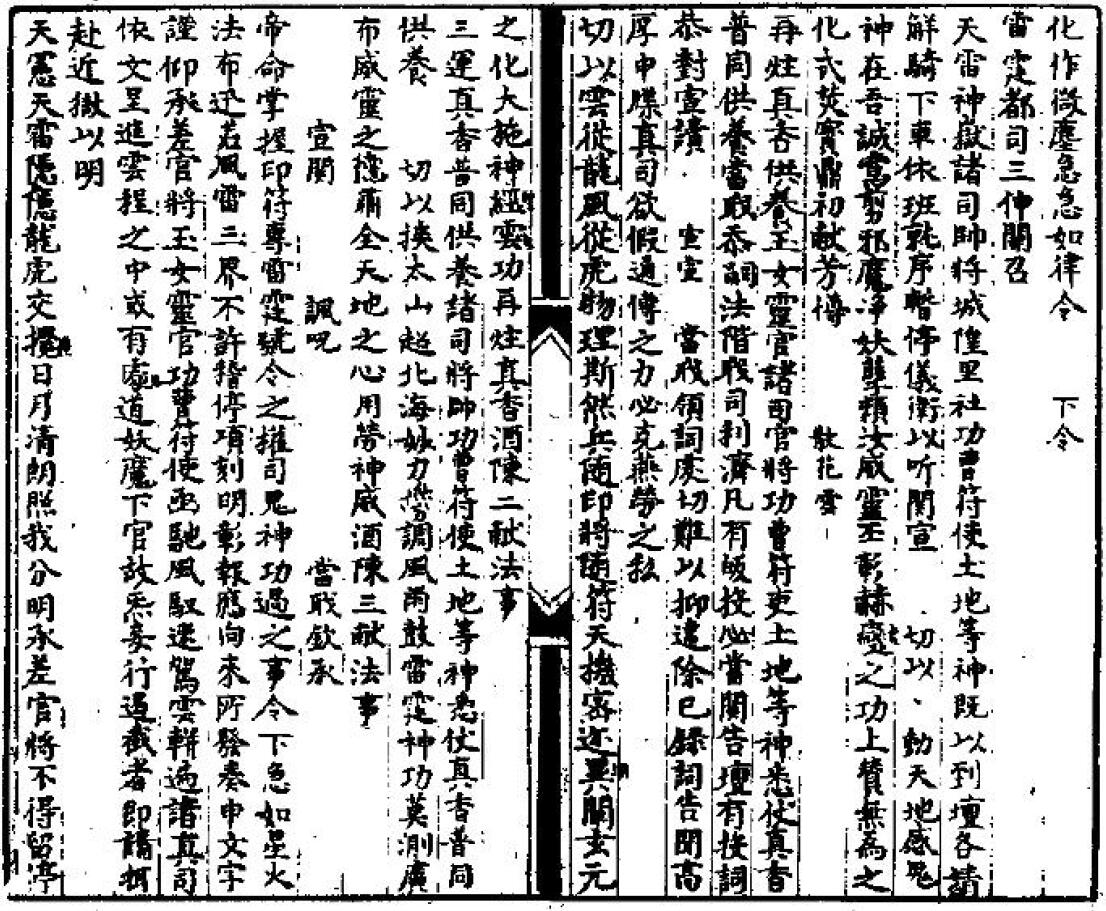 化作微塵急急如律令　下令
雷霆都司三仲關召
天雷神獄諸司帥將城隍里社功曹符使土地等神既以到壇各請
解騎下車依班就序暫停儀衛以听關宣　切以動天地感鬼
神在吾誠當剪邪魔淨妖孽賴汝威靈丕彰赫奕之功上贊無為之
化式焚寶鼎初献芳樽　散花雲
再炷真香供養玉女靈官諸司官將功曹符吏土地等神悉仗真香
普同供養當戝忝詞法階戝司利濟凡有皈投必當關告壇有投詞
恭對宣讀　宣宣　當戝領詞處切難以抑違除已録詞告聞高
厚申牒真司欲假通傳之力必克燕勞之私
切以雲從龍風從虎物理斯然兵随印將随符天機密邇異關玄元
之化大施神綑雲功再炷真香酒陳二献法事
三運真香普同供養諸司將帥功曹符使土地等神悉仗真香普同
供養　切以挾太山超北海妙力𠎝調風雨鼓雷霆神功莫測廣
布威靈之隱肅全天地之心用勞神威酒陳三献法事
宣關　諷呪　當戝欽承
帝命掌握印符專雷霆號令之權司鬼神功過之事令下急如星火
法布迅若風雷三界不許稽停項刻明彰報應向來所發奏申文字
謹仰承差官將玉女靈官功曹符使亟馳風馭速駕雲軿遍諸真司
依文呈進雲程之中或有虛道妖魔下官故炁妄行遏截者即請柯
赴近撳以明
天憲天雷隱隱龍虎交摟日月清朗照我分明承差官將不得留停